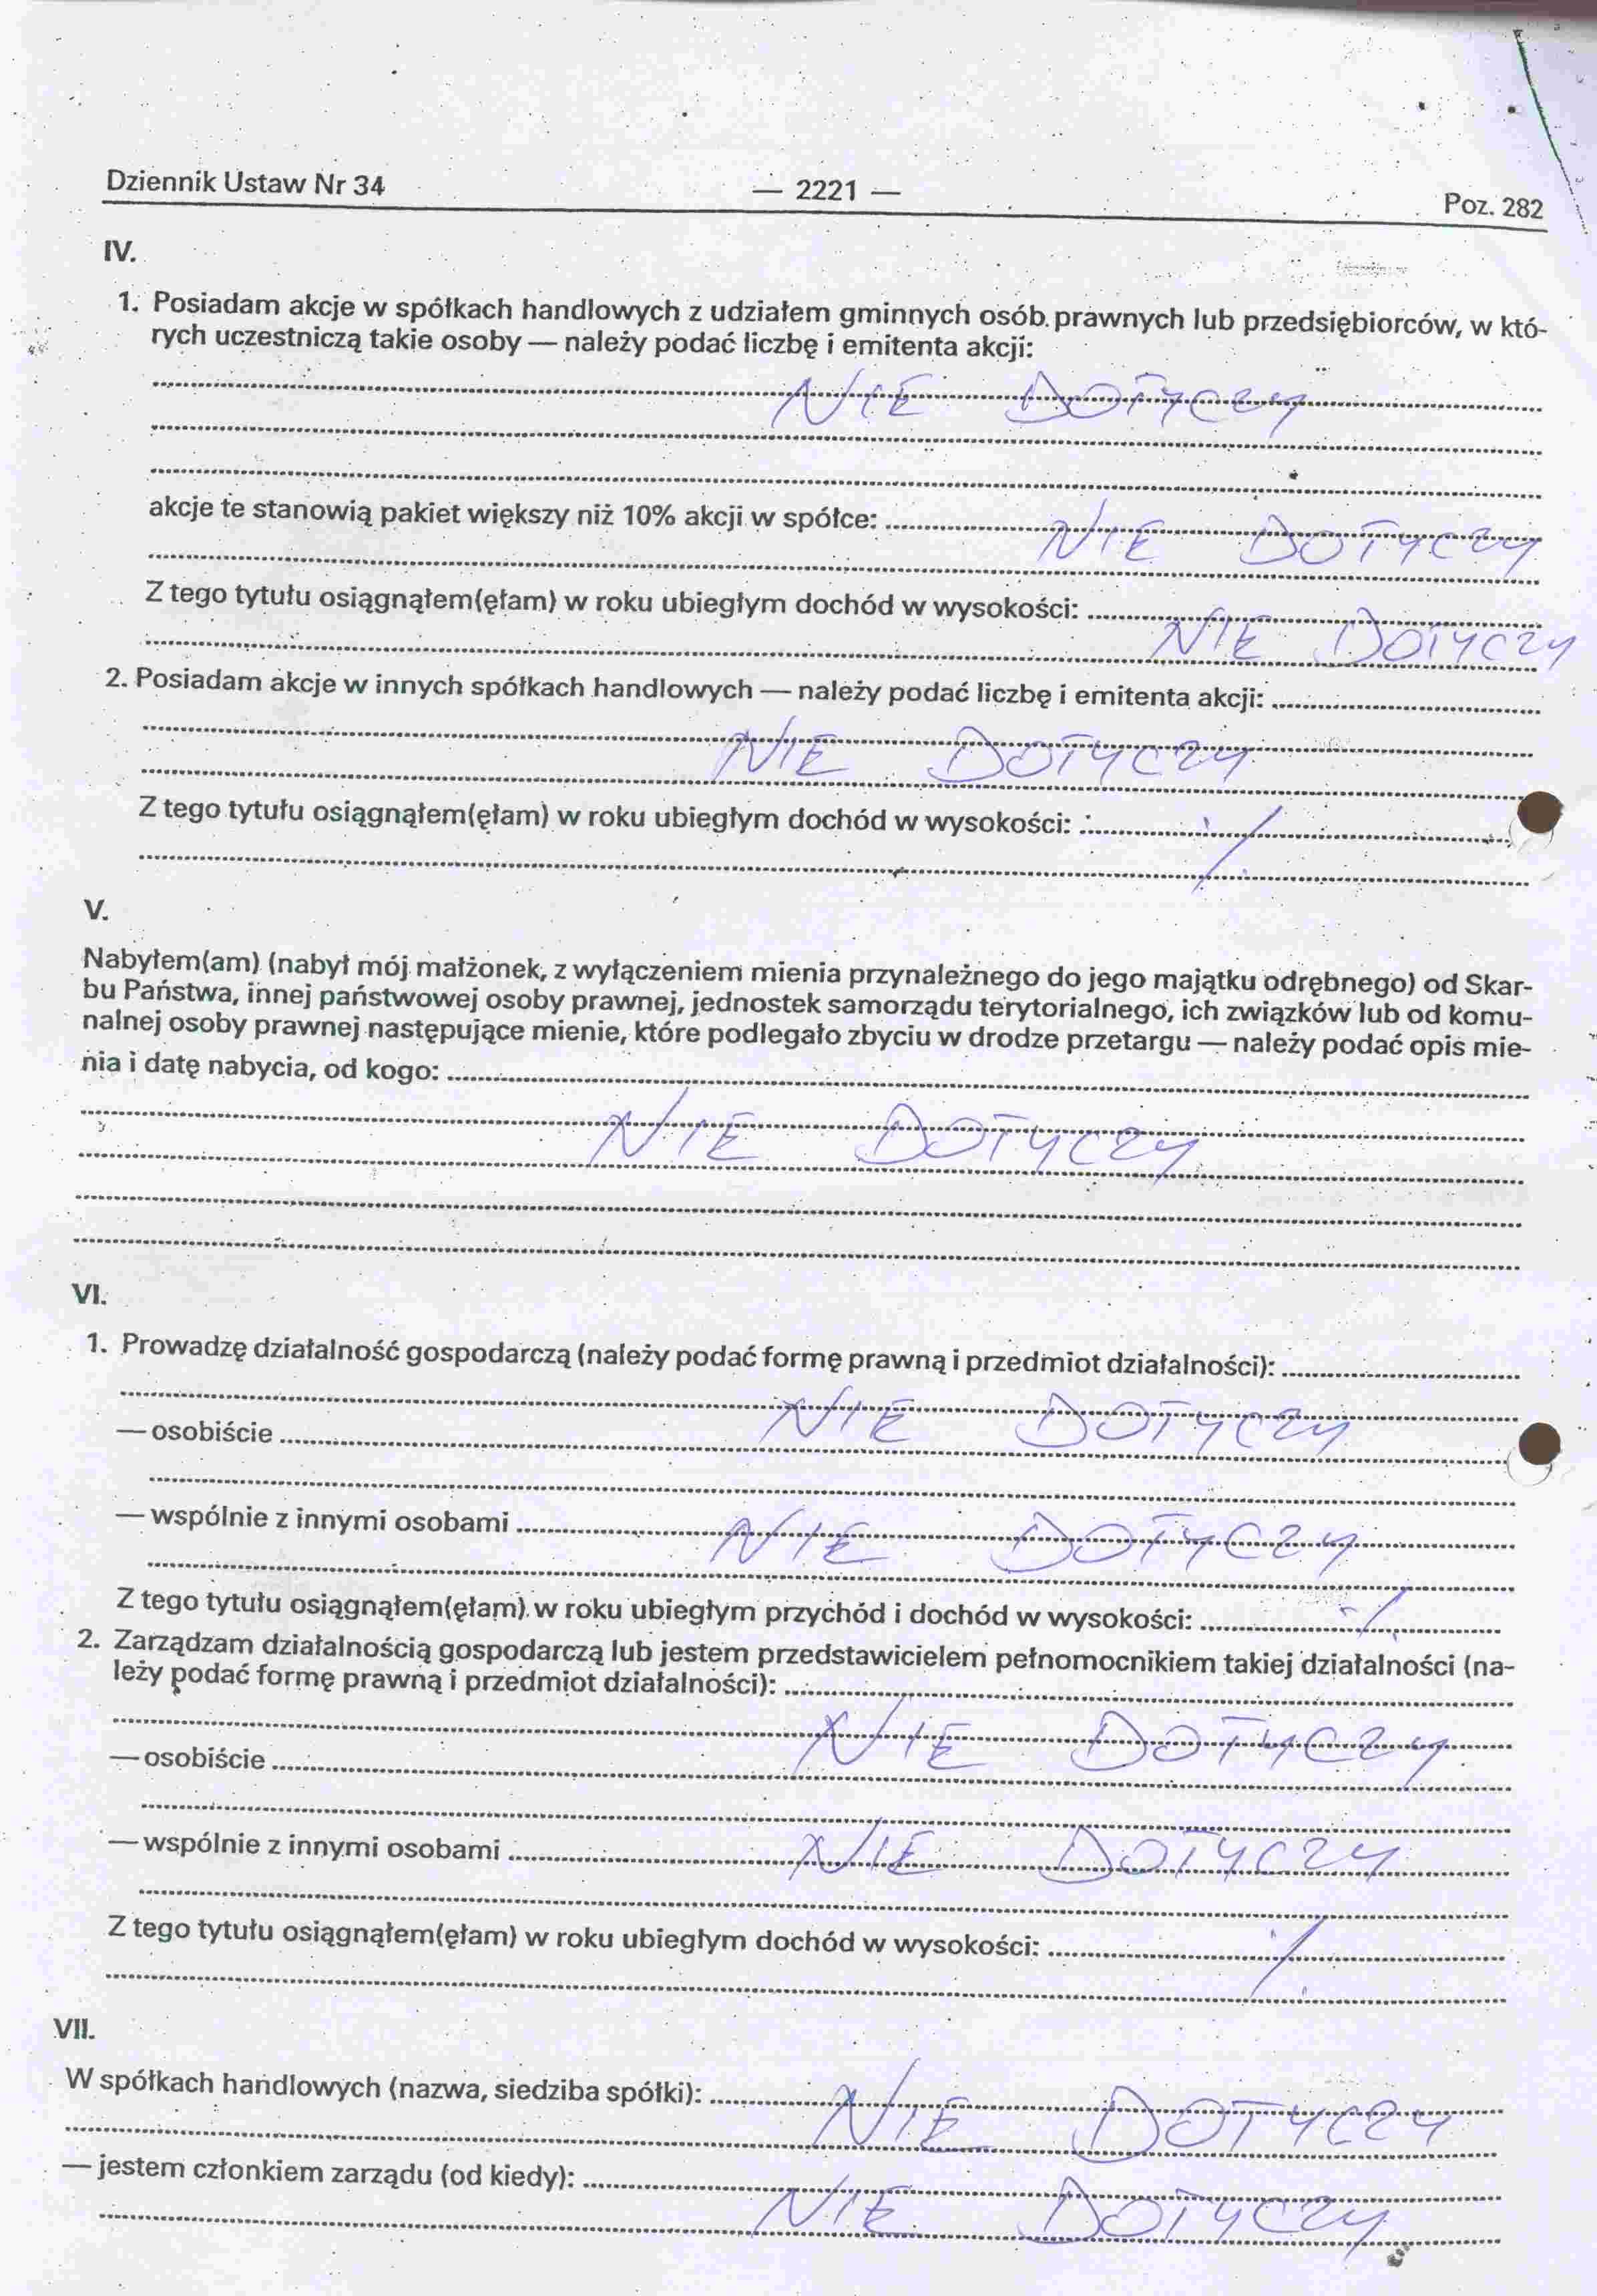 Dziennik Ustaw Nr 34 — 2221 — Poz. 282
IV.
1. Posiadam akcje w spółkach handlowych z udziałem gminnych osób prawnych lub przedsiębiorców, w któ-
rych uczestniczą takie osoby — należy podać liczbę i emitenta akcji:
NIE DOTYCZY
akcje te stanowią pakiet większy niż 10% akcji w spółce:
NIE DOTYCZY
Z tego tytułu osiągnąłem(ęłam) w roku ubiegłym dochód w wysokości:
NIE DOTYCZY
2. Posiadam akcje w innych spółkach handlowych — należy podać liczbę i emitenta akcji:
NIE DOTYCZY
Z tego tytułu osiągnąłem(ęłam) w roku ubiegłym dochód w wysokości: ./.
V.
Nabyłem(am) (nabył mój małżonek, z wyłączeniem mienia przynależnego do jego majątku odrębnego) od Skar-
bu Państwa, innej państwowej osoby prawnej, jednostek samorządu terytorialnego, ich związków lub od komu-
nalnej osoby prawnej następujące mienie, które podlegało zbyciu w drodze przetargu — należy podać opis mie-
nia i datę nabycia, od kogo:
NIE DOTYCZY
VI.
1. Prowadzę działalność gospodarczą (należy podać formę prawną i przedmiot działalności):
NIE DOTYCZY
— osobiście
— wspólnie z innymi osobami NIE DOTYCZY
Z tego tytułu osiągnąłem(ęłam) w roku ubiegłym przychód i dochód w wysokości: ./.
2. Zarządzam działalnością gospodarczą lub jestem przedstawicielem pełnomocnikiem takiej działalności (na-
leży podać formę prawną i przedmiot działalności):
NIE DOTYCZY
— osobiście
— wspólnie z innymi osobami NIE DOTYCZY
Z tego tytułu osiągnąłem(ęłam) w roku ubiegłym dochód w wysokości: ./.
VII.
W spółkach handlowych (nazwa, siedziba spółki): NIE DOTYCZY
— jestem członkiem zarządu (od kiedy):
NIE DOTYCZY